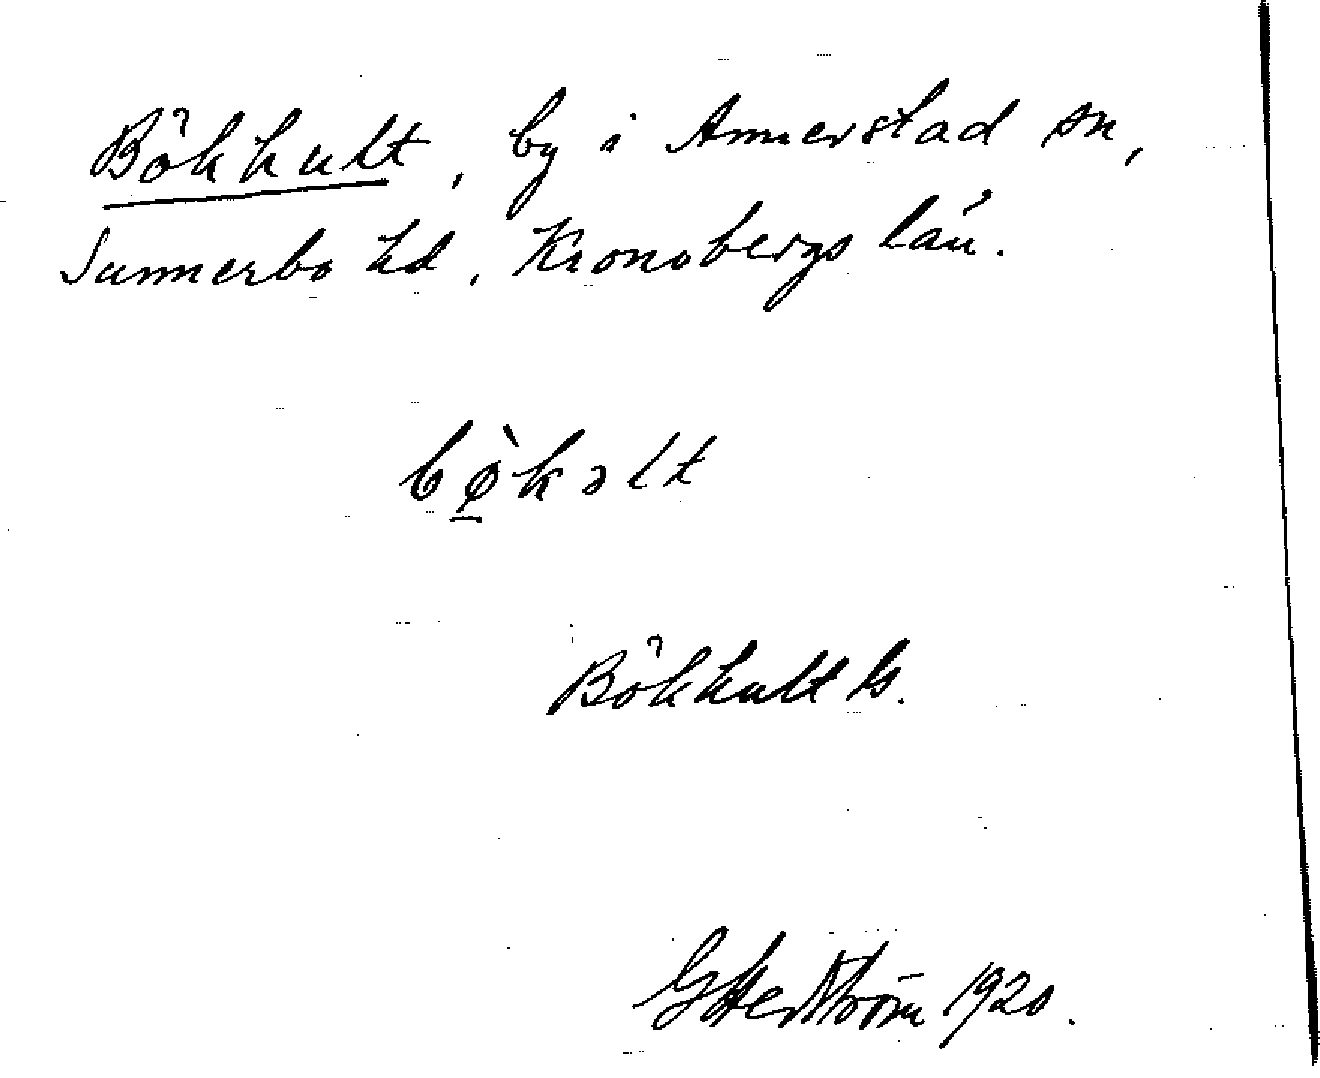 Bökhult, by i Annerstad sn,
Sunnerbo hd, Kronobergs län.
bø̀kəlt
Bökhult Gs.
G Hedström 1920.